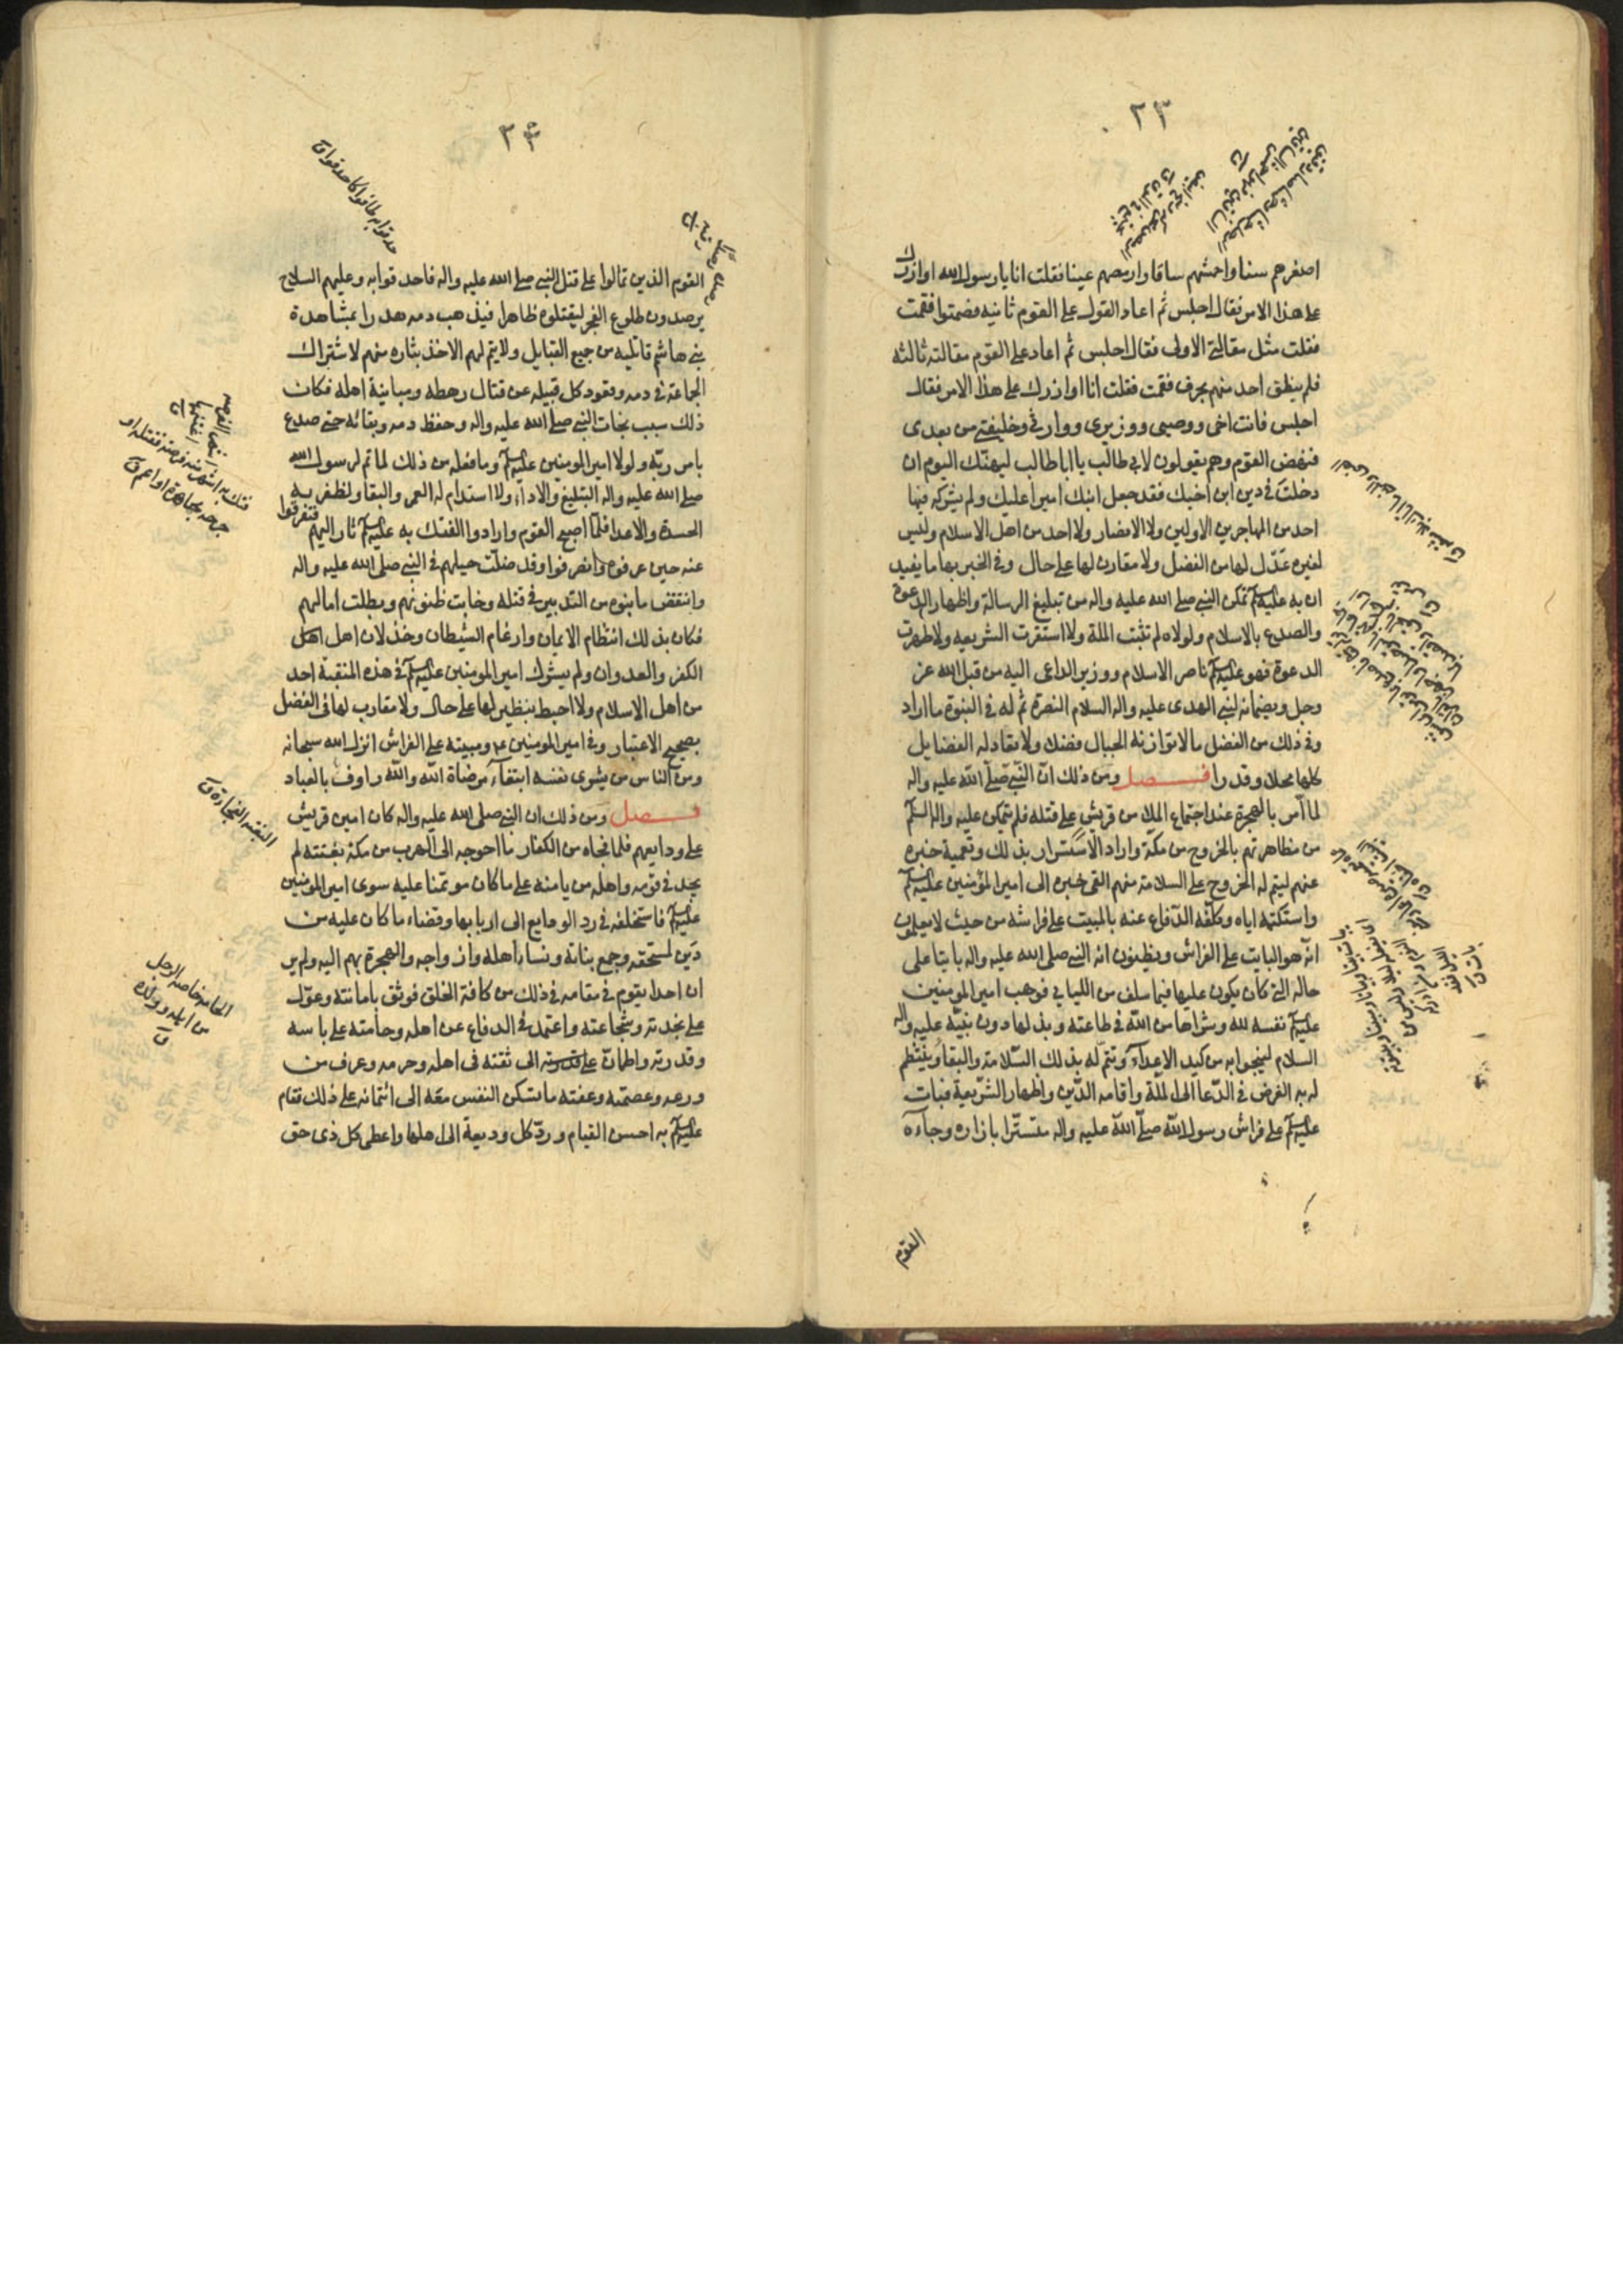 ٢٣
اصغرهم سنا واحمشهم ساقا وارمصهم عينا فقلت انا يا رسول الله اوازرك
على هذا الامر فقال اجلس ثم اعاد القول على القوم ثانيه فصمتوا فقمت
فقلت مثل مقالتى الاولى فقال اجلس ثم اعاد على القوم مقالته ثالثه
فلم ينطق احد منهم بحرف فقمت فقلت انا اوازرك على هذا الامر فقال
اجلس فانت اخى ووصيى ووزيرى ووارثى وخليفتى من بعدى
فنهض القوم وهم يقولون لابى طالب يا ابا طالب ليهنّك اليوم ان
دخلت فى دين ابن اخيك فقد جعل ابنك اميرا عليك ولم يشركه فيها
احد من المهاجرين الاولين ولا الانصار ولا احد من اهل الاسلام وليس
لغيره عَدْل لها من الفضل ولا مقارن لها على حال وفى الخبر بها ما يفيد
ان به عليه السلم تمكن النبى صلى الله عليه واله من تبليغ الرسالة واظهار الدعوة
والصدع بالاسلام ولولاه لم تثبت الملة ولا استقرت الشريعه ولا ظهرت
الدعوة فهو عليه السلم ناصر الاسلام ووزير الداعى اليه من قبل الله عز
وجل وبضمانه لنبى الهدى عليه واله السلام النصرة تم له فى النبوة ما اراد
وفى ذلك من الفضل ما لا توازنه الجبال فضلا ولا تعادله الفضايل
كلها محلا وقدرا فصل ومن ذلك انّ النّبى صلّى اللّه عليه واله
لما اُمر بالهجرة عند اجتماع الملا من قريش على قتله فلم يتمكن عليه واله السلم
من مظاهرتهم بالخروج من مكة واراد الاستسرار بذلك وتعمية خبره
عنهم ليتم له الخروج على السلامة منهم القى خبره الى امير المؤمنين عليه السلم
واستكتمه اياه وكلّفه الدّفاع عنه بالمبيت على فراشه من حيث لا يعلمون
انّه هو البايت على الفراش ويظنون انه النبى صلى الله عليه واله بايتا على
حاله التى كان يكون عليها فيما سلف من الليالى فوهب امير المومنين
عليه السلم نفسه لله وشراها من اللّه فى طاعته وبذلها دون نبيّه عليه واله
السلام لينجوا به من كيد الاعدآء وتتمّ له بذلك السّلامة والبقا وينتظم
له به الغرض فى الدّعا الى الملّة واقامه الدّين واظهار الشّريعة فبات
عليه السلم على فراش رسول اللّه صلّى اللّه عليه واله متستّرا بازاره وجآءه
القوم
٢٤
القوم الذين تمالوا على قتل النبى صلى الله عليه واله فاحدقوا به وعليهم السلاح
يرصدون طلوع الفجر ليقتلوه ظاهرا فيذهب دمه هدرا بمشاهدة
بنى هاشم قاتليه من جميع القبايل ولا يتم لهم الاخذ بثاره منهم لاشتراك
الجماعة فى دمه وقعود كل قبيله عن قتال رهطه ومباينة اهله فكان
ذلك سبب نجات النبى صلى الله عليه واله وحفظ دمه وبقائه حتى صدع
بامر ربّه ولولا امير المومنين عليه السلم وما فعله من ذلك لما تم لرسول الله
صلى الله عليه واله التبليغ والاداء ولا استدام له العمر والبقا ولظفر به
الحسدة والاعدا فلمّا اصبح القوم وارادوا الفتك به عليه السلم ثار اليهم فتفرقوا
عنه حين عرفوه وانصرفوا وقد ضلّت حيلهم فى النبى صلى الله عليه واله
وانتقض ما بنوه من التدبير فى قتله وخابت ظنونهم وبطلت امالهم
فكان بذلك انتظام الايمان وارغام الشيطان وخذلان اهل
الكفر والعدوان ولم يشرك امير المومنين عليه السلم فى هذه المنقبة احد
من اهل الاسلام ولا احيط بنظير لها على حال ولا مقارب لها فى الفضل
بصحيح الاعتبار وفى امير المومنين ع م ومبيته على الفراش انزل الله سبحانه
ومن الناس من يشرى نفسه ابتغاءَ مرضاة اللّه واللّه رءوف بالعباد
فصل ومن ذلك ان النبى صلى الله عليه واله كان امين قريش
على ودايعهم فلما فجاه من الكفار ما احوجه الى الهرب من مكة بغتته لم
يجد فى قومه واهله من يامنه على ما كان موتمنا عليه سوى امير المومنين
عليه السلم فاستخلفه فى رد الودايع الى اربابها وقضاء ما كان عليه من
دَين لمستحقه وجمع بناته ونساء اهله وازواجه والهجرة بهم اليه ولم ير
ان احدا يقوم فى مقامه فى ذلك من كافة الخلق فوثق بامانته وعوّل
على نجدته وشجاعته واعتمد فى الدفاع عن اهله وحامته على باسه
وقدرته واطمانّ الى ثقته فى اهله وحرمه وعرف من
ورعه وعصمته وعفته ما تسكن النفس معه الى ائتمانه على ذلك فقام
عليه السلم به احسن القيام وردّ كل وديعة الى اهلها واعطى كل ذى حق
الحامه خاصه الرجل
من اهله وولده
ق